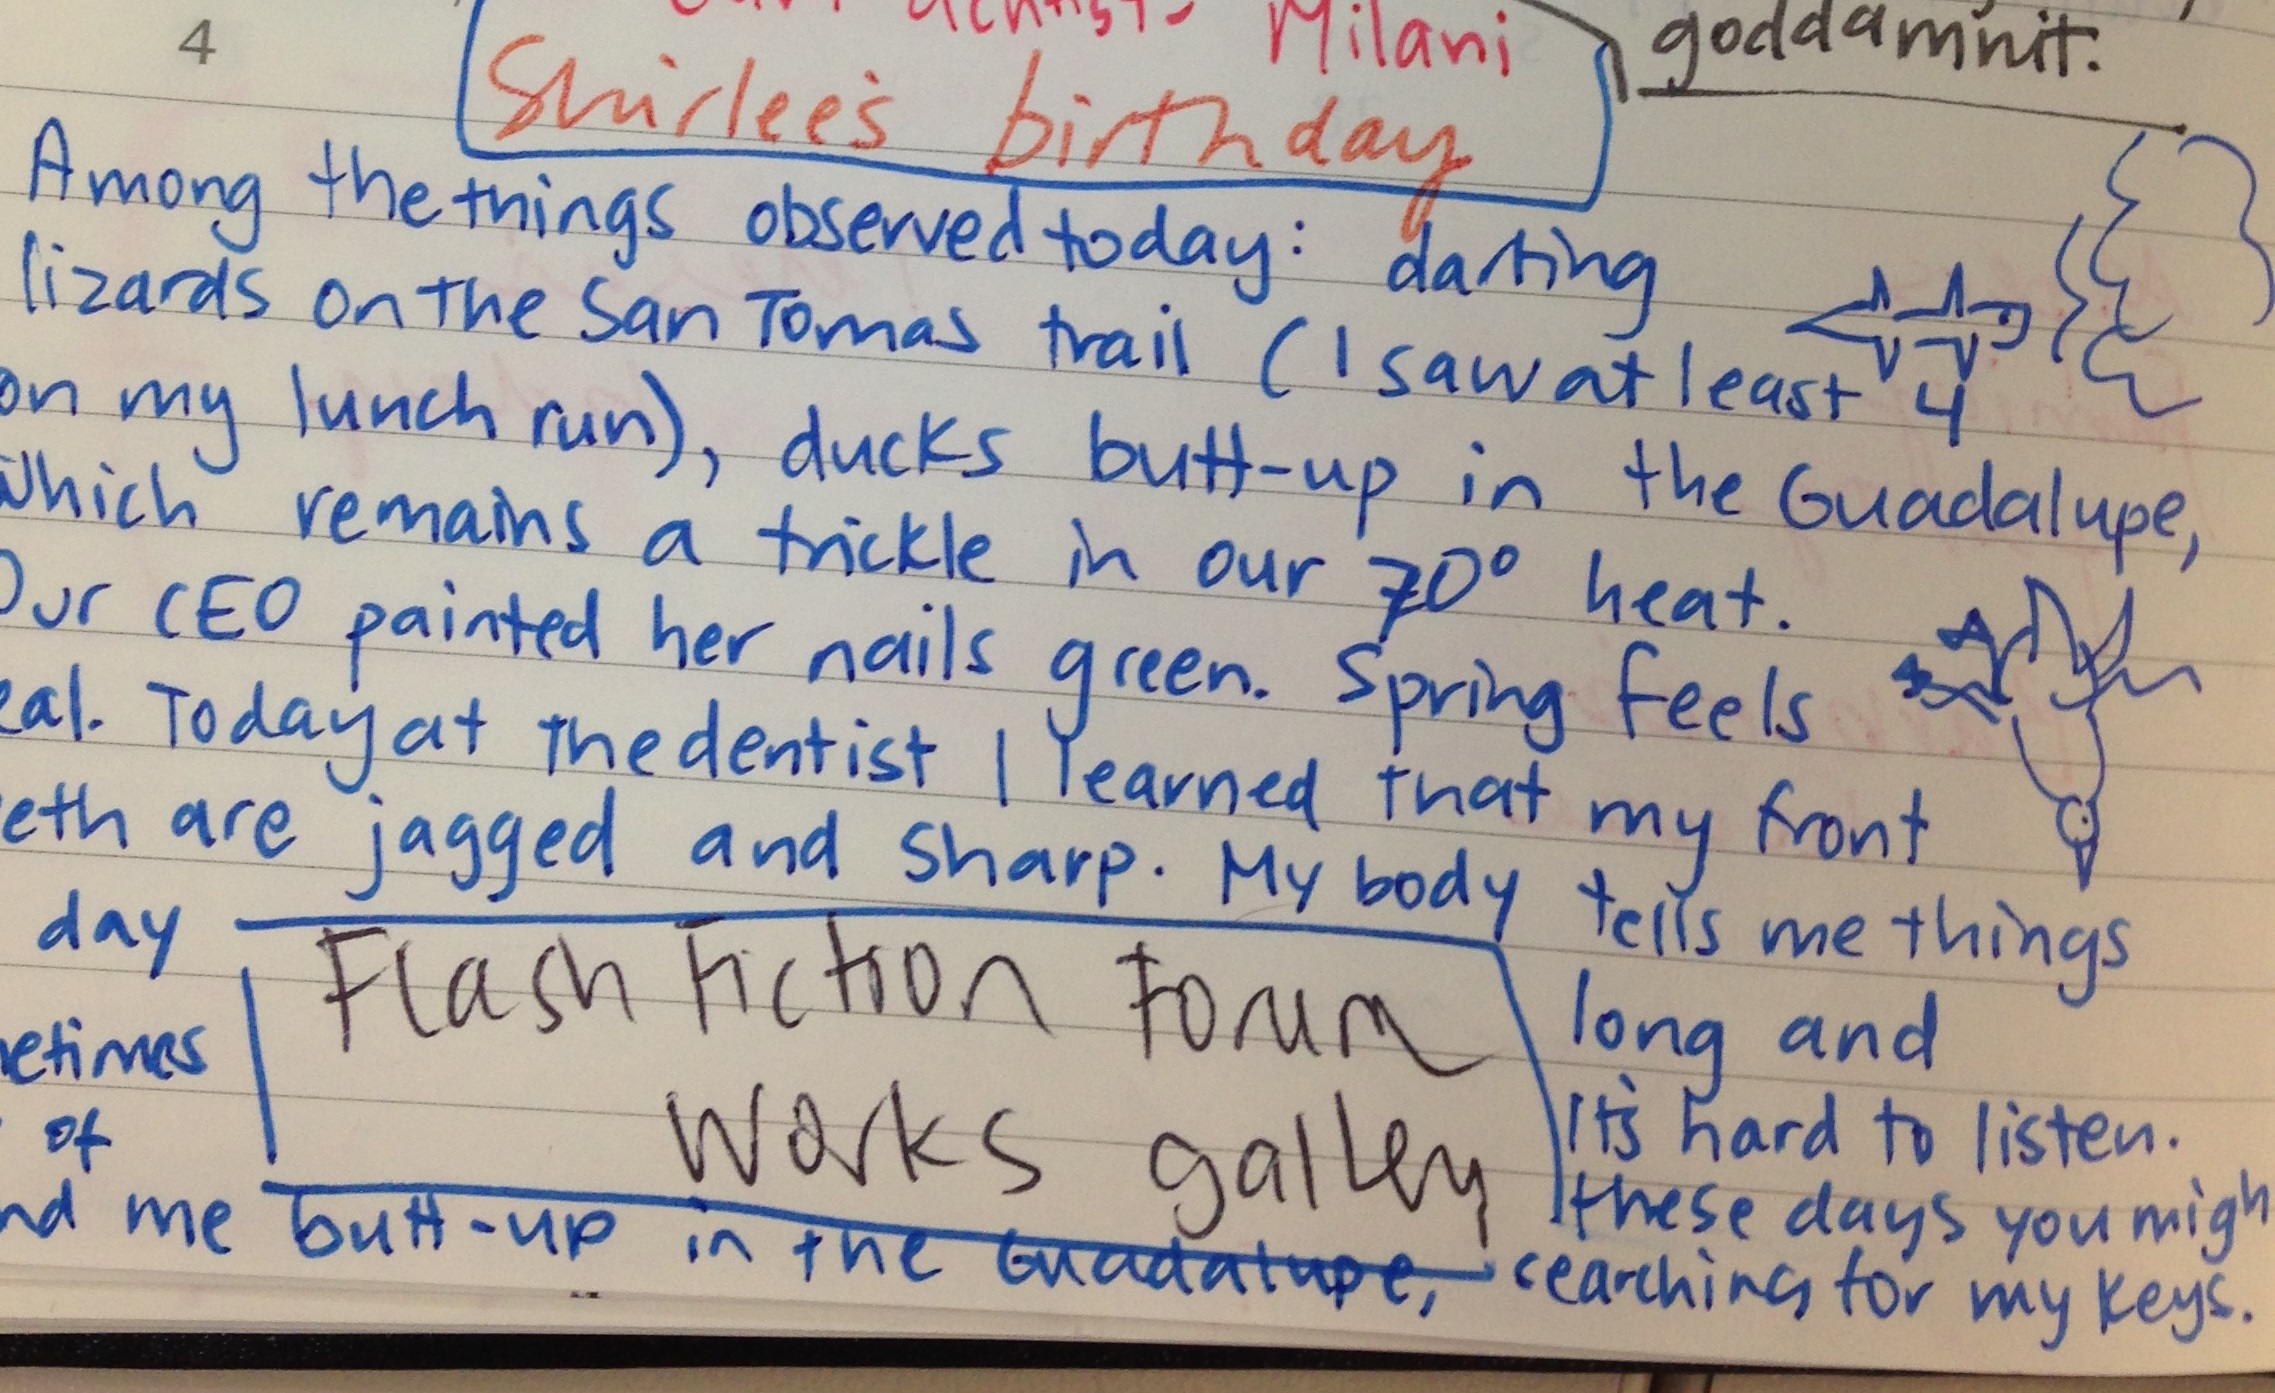 4
Milani
goddamnit.
Shirlee's birthday
Among the things observed today: darting
lizards on the San Tomas trail (I saw at least 4
on my lunch run), ducks butt-up in the Guadalupe,
which remains a trickle in our 70° heat.
Our CEO painted her nails green. Spring feels
eal. Today at the dentist I learned that my front
eeth are jagged and sharp. My body tells me things
day
long and
etimes
it's hard to listen.
of
these days you migh
nd me butt-up in the Guadalupe, searching for my keys.
Flash Fiction Forum
Works gallery